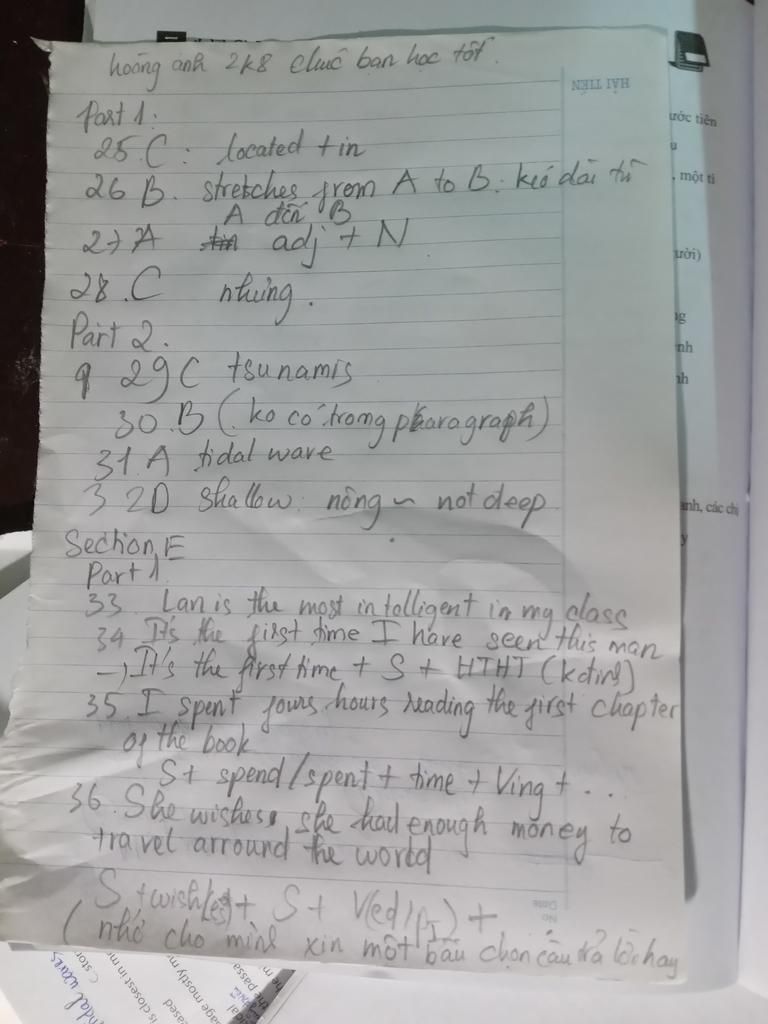 hoàng ánh 2k8 chúc bạn học tốt.
HẢI TIẾN
Part 1:
25.C: located + in
26 B. stretches from A to B: kéo dài từ
A đến B
27 A adj + N
28.C nhưng.
Part 2.
29 C tsunamis
30.B (ko có trong pharagraph)
31.A tidal wave
32D shallow: nông ~ not deep
Section E
Part 1.
33. Lan is the most intelligent in my class
34 It's the first time I have seen this man
→ It's the first time + S + HTHT (kđịnh)
35. I spent fours hours reading the first chapter
of the book
S + spend/spent + time + Ving + ...
36. She wishes she had enough money to
travel arround the world
S + wish(es) + S + V(ed/pI) +
No
Date
(nhớ cho mình xin một bầu chọn câu trả lời hay
ước tiên
, một ti
ười)
ng
nh
nh
anh, các chị
y
tidal waves
is closest in m
age mostly m
eased
he passa